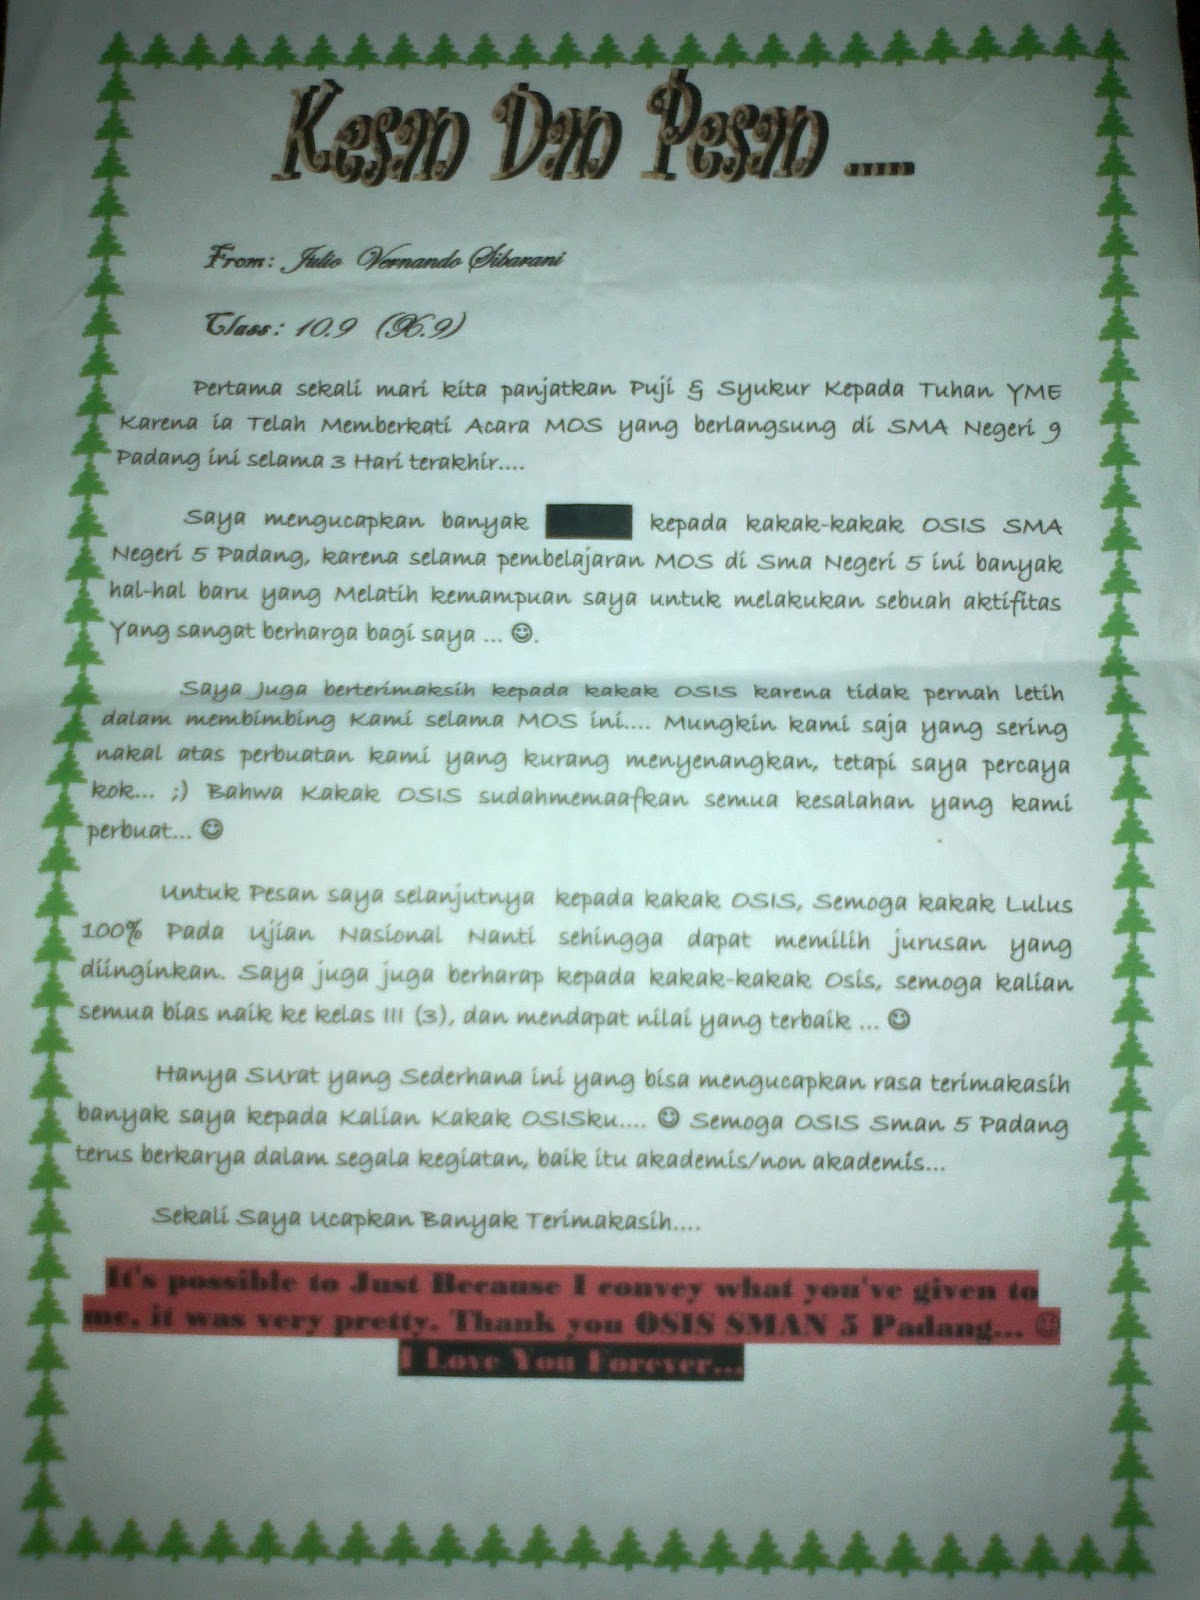 Kesan Dan Pesan .....
From: Julio Vernando Sibarani
Class: 10.9 (X6.9)
Pertama sekali mari kita panjatkan Puji & Syukur Kepada Tuhan YME
Karena ia Telah Memberkati Acara MOS yang berlangsung di SMA Negeri 9
Padang ini selama 3 Hari terakhir....
Saya mengucapkan banyak kepada kakak-kakak OSIS SMA
Negeri 5 Padang, karena selama pembelajaran MOS di Sma Negeri 5 ini banyak
hal-hal baru yang Melatih kemampuan saya untuk melakukan sebuah aktifitas
Yang sangat berharga bagi saya ... ☺.
Saya Juga berterimaksih kepada kakak OSIS karena tidak pernah letih
dalam membimbing Kami selama MOS ini.... Mungkin kami saja yang sering
nakal atas perbuatan kami yang kurang menyenangkan, tetapi saya percaya
kok... ;) Bahwa Kakak OSIS sudahmemaafkan semua kesalahan yang kami
perbuat... ☺
Untuk Pesan saya selanjutnya kepada kakak OSIS, Semoga kakak Lulus
100% Pada Ujian Nasional Nanti sehingga dapat memilih jurusan yang
diinginkan. Saya juga juga berharap kepada kakak-kakak Osis, semoga kalian
semua bias naik ke kelas III (3), dan mendapat nilai yang terbaik ... ☺
Hanya SUrat yang Sederhana ini yang bisa mengucapkan rasa terimakasih
banyak saya kepada Kalian Kakak OSISku.... ☺ Semoga OSIS Sman 5 Padang
terus berkarya dalam segala kegiatan, baik itu akademis/non akademis...
Sekali Saya Ucapkan Banyak Terimakasih....
It's possible to Just Because I convey what you've given to
me, it was very pretty. Thank you OSIS SMAN 5 Padang... ☺
I Love You Forever...